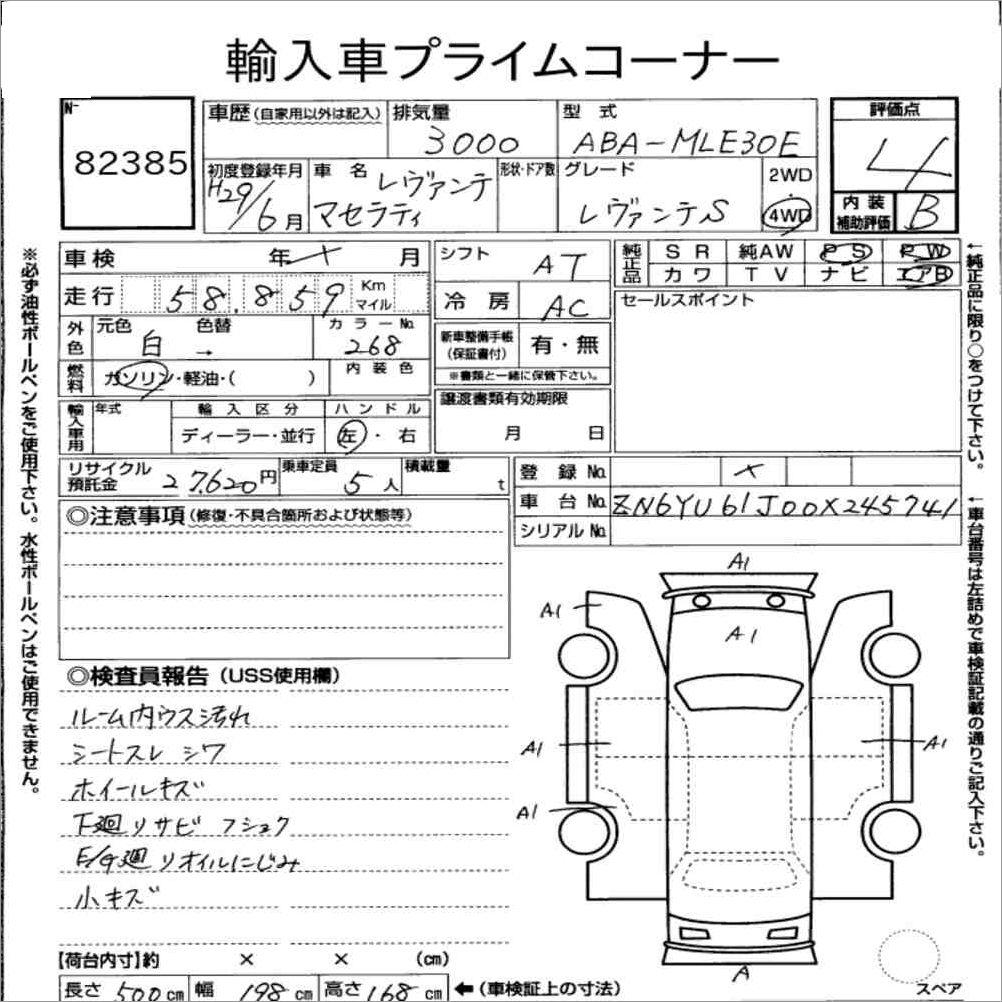 輸入車プライムコーナー
No
82385
車歴(自家用以外は記入)
排気量
3000
型 式
ABA-MLE30E
評価点
4
初度登録年月
H29/6月
車 名
レヴァンテ
マセラティ
形状・ドア数
グレード
レヴァンテS
2WD
・
4WD
内 装
補助評価
B
車検 年 × 月
走行 58,859 Km
マイル
外色
元色 色替
白 →
カラーNo.
268
燃料
ガソリン・軽油・( )
内 装 色
輸入車用
年式
輸 入 区 分
ディーラー・並行
ハ ン ド ル
左 ・ 右
シフト
AT
冷 房
AC
新車整備手帳
(保証書付)
有・無
※書類と一緒に保管下さい。
譲渡書類有効期限
月 日
純正品
S R 純AW P S P W
カワ T V ナビ エアB
セールスポイント
リサイクル
預託金
27,620円
乗車定員
5人
積載量
t
登 録 No. ×
車 台 No. ZN6YU61J00X245741
シリアル No.
◎注意事項(修復・不具合箇所および状態等)
◎検査員報告(USS使用欄)
ルーム内ウス汚れ
シートスレ シワ
ホイールキズ
下廻リサビ フショク
E/G廻リオイルにじみ
小キズ
【荷台内寸】約 × × (cm)
長さ 500cm 幅 198cm 高さ 168cm ←(車検証上の寸法)
A1
A1
A1
A1
A1
A1
A
スペア
※必ず油性ボールペンをご使用下さい。水性ボールペンはご使用できません。
←純正品に限り○をつけて下さい。
←車台番号は左詰めで車検証記載の通りご記入下さい。